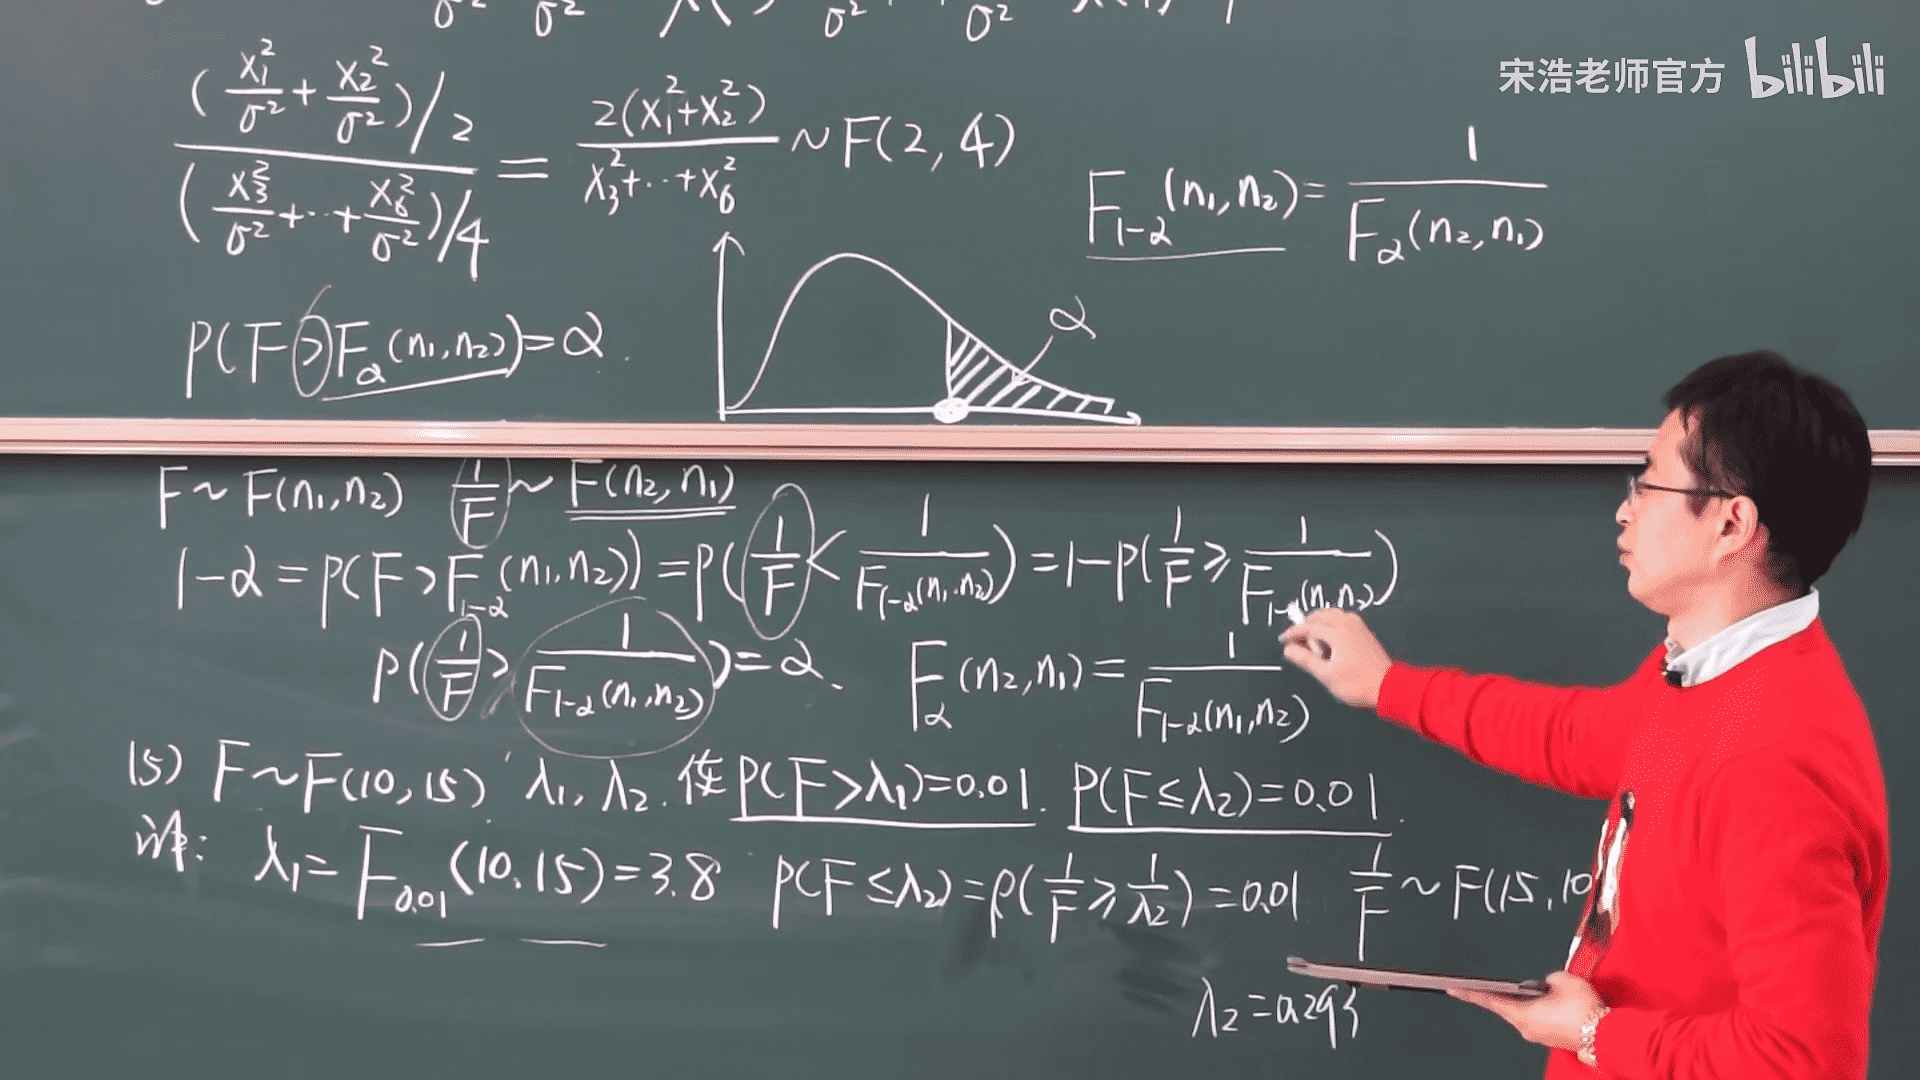 宋浩老师官方 bilibili
(X₁²/σ² + X₂²/σ²)/2 / (X₃²/σ² + ‥ + X₆²/σ²)/4 = 2(X₁²+X₂²) / X₃²+‥+X₆² ~ F(2,4)
F₁₋α(n₁,n₂) = 1/Fα(n₂,n₁)
P(F > Fα(n₁,n₂)) = α.
α
F ~ F(n₁,n₂) 1/F ~ F(n₂,n₁)
1-α = P(F > F₁₋α(n₁,n₂)) = P(1/F < 1/F₁₋α(n₁,n₂)) = 1-P(1/F ≥ 1/F₁₋α(n₁,n₂))
P(1/F > 1/F₁₋α(n₁,n₂)) = α. Fα(n₂,n₁) = 1/F₁₋α(n₁,n₂)
(5) F~F(10,15) λ₁,λ₂.使P(F>λ₁)=0.01. P(F≤λ₂)=0.01.
λ₁ = F₀.₀₁(10,15) = 3.8 P(F≤λ₂) = P(1/F ≥ 1/λ₂) = 0.01 1/F ~ F(15,10
λ₂ = 0.293